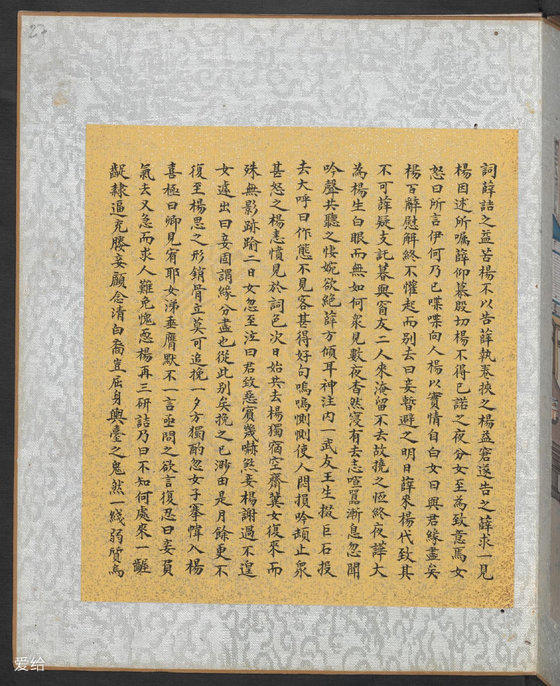 詞薛詰之益苦楊不以告薛執卷挾之楊益窘遂告之薛求一見
楊因述所囑薛仰慕殷切楊不得已諾之夜分女至為致意焉女
怒曰所言伊何乃已喋喋向人楊以實情自白女曰與君緣盡矣
楊百辭慰解終不懽起而別去曰妾暫避之明日薛來楊代致其
不可薛疑支託暮與窗友二人來淹留不去故撓之恆終夜譁大
為楊生白眼而無如何衆見數夜杳然寖有去志喧囂漸息忽聞
吟聲共聽之悽婉欲絕薛方傾耳神注內一武友王生掇巨石投
去大呼曰作態不見客甚得好句嗚嗚惻惻使人悶損吟頓止衆
甚怒之楊恚憤見於詞色次日始共去楊獨宿空齋冀女復來而
殊無影跡踰二日女忽至泣曰君致惡賓幾嚇煞妾楊謝過不遑
女遽出曰妾固謂緣分盡也從此別矣挽之已渺由是月餘更不
復至楊思之形銷骨立莫可追挽一夕方獨酌忽女子搴幃入楊
喜極曰卿見宥耶女涕垂膺默不一言亟問之欲言復忍曰妾負
氣去又急而求人難免愧恧楊再三研詰乃曰不知何處來一齷
齪隸逼充媵妾顧念清白裔豈屈身輿臺之鬼然一綫弱質烏
愛给